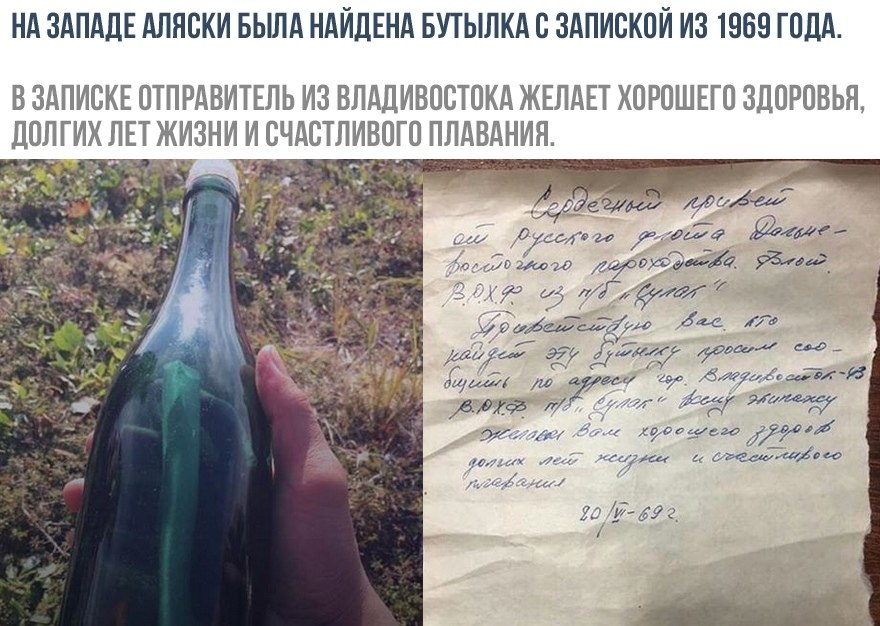 НА ЗАПАДЕ АЛЯСКИ БЫЛА НАЙДЕНА БУТЫЛКА С ЗАПИСКОЙ ИЗ 1969 ГОДА.
В ЗАПИСКЕ ОТПРАВИТЕЛЬ ИЗ ВЛАДИВОСТОКА ЖЕЛАЕТ ХОРОШЕГО ЗДОРОВЬЯ,
ДОЛГИХ ЛЕТ ЖИЗНИ И СЧАСТЛИВОГО ПЛАВАНИЯ.
Сердечный привет
от русского флота Дальне-
восточного пароходства. Флот.
В.Р.Х.Ф. из п/б „Сулак"
Приветствую Вас, кто
найдёт эту бутылку просим соо-
бщить по адресу гор. Владивосток-43
В.Р.Х.Ф. п/б „Сулак" всему экипажу
желаем Вам хорошего здоров
долгих лет жизни и счастливого
плавания
20/VI-69 г.